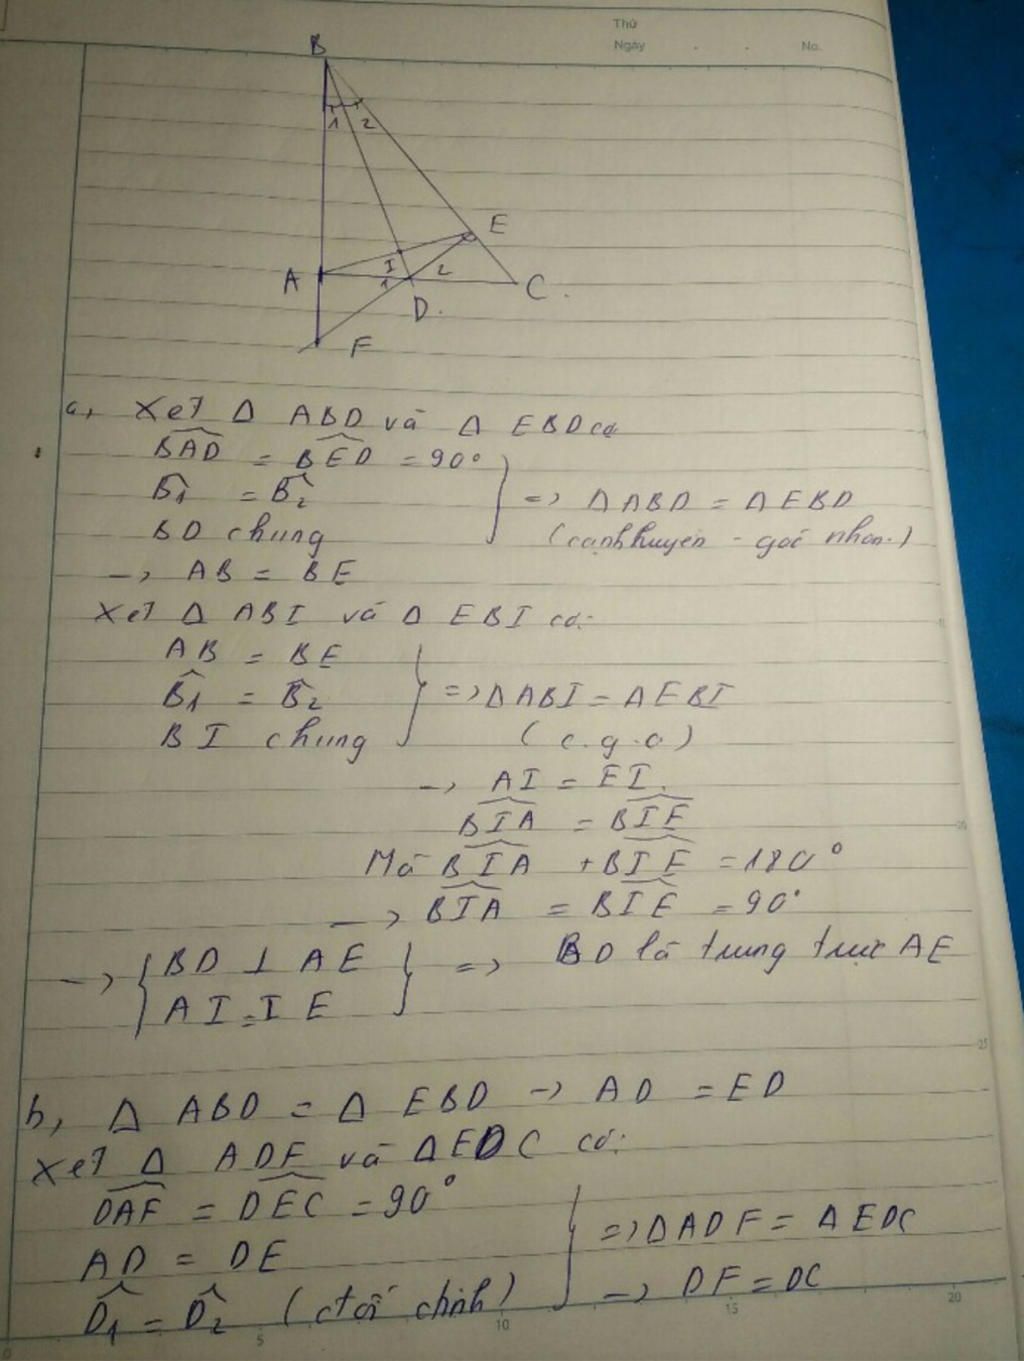 Thứ
Ngày . . No.
B
1 2
E
A I 2 C.
1
D.
F
a, Xét Δ ABD và Δ EBD có
$\widehat{BAD}$ = $\widehat{BED}$ = 90°
$\widehat{B_1}$ = $\widehat{B_2}$ } => Δ ABD = Δ EBD
BD chung (cạnh huyền - góc nhọn.)
-> AB = BE
Xét Δ ABI và Δ EBI có:
AB = BE
$\widehat{B_1}$ = $\widehat{B_2}$ } => Δ ABI = Δ EBI
BI chung (c.g.c)
-> AI = EI.
$\widehat{BIA}$ = $\widehat{BIE}$
Mà $\widehat{BIA}$ + $\widehat{BIE}$ = 180°
-> $\widehat{BIA}$ = $\widehat{BIE}$ = 90°
-> { BD ⊥ AE } => BD là trung trực AE
AI = IE
b, Δ ABD = Δ EBD -> AD = ED
Xét Δ ADF và Δ EDC có:
$\widehat{DAF}$ = $\widehat{DEC}$ = 90°
AD = DE } => Δ ADF = Δ EDC
$\widehat{D_1}$ = $\widehat{D_2}$ (đối đỉnh) -> DF = DC
0 5 10 15 20
25